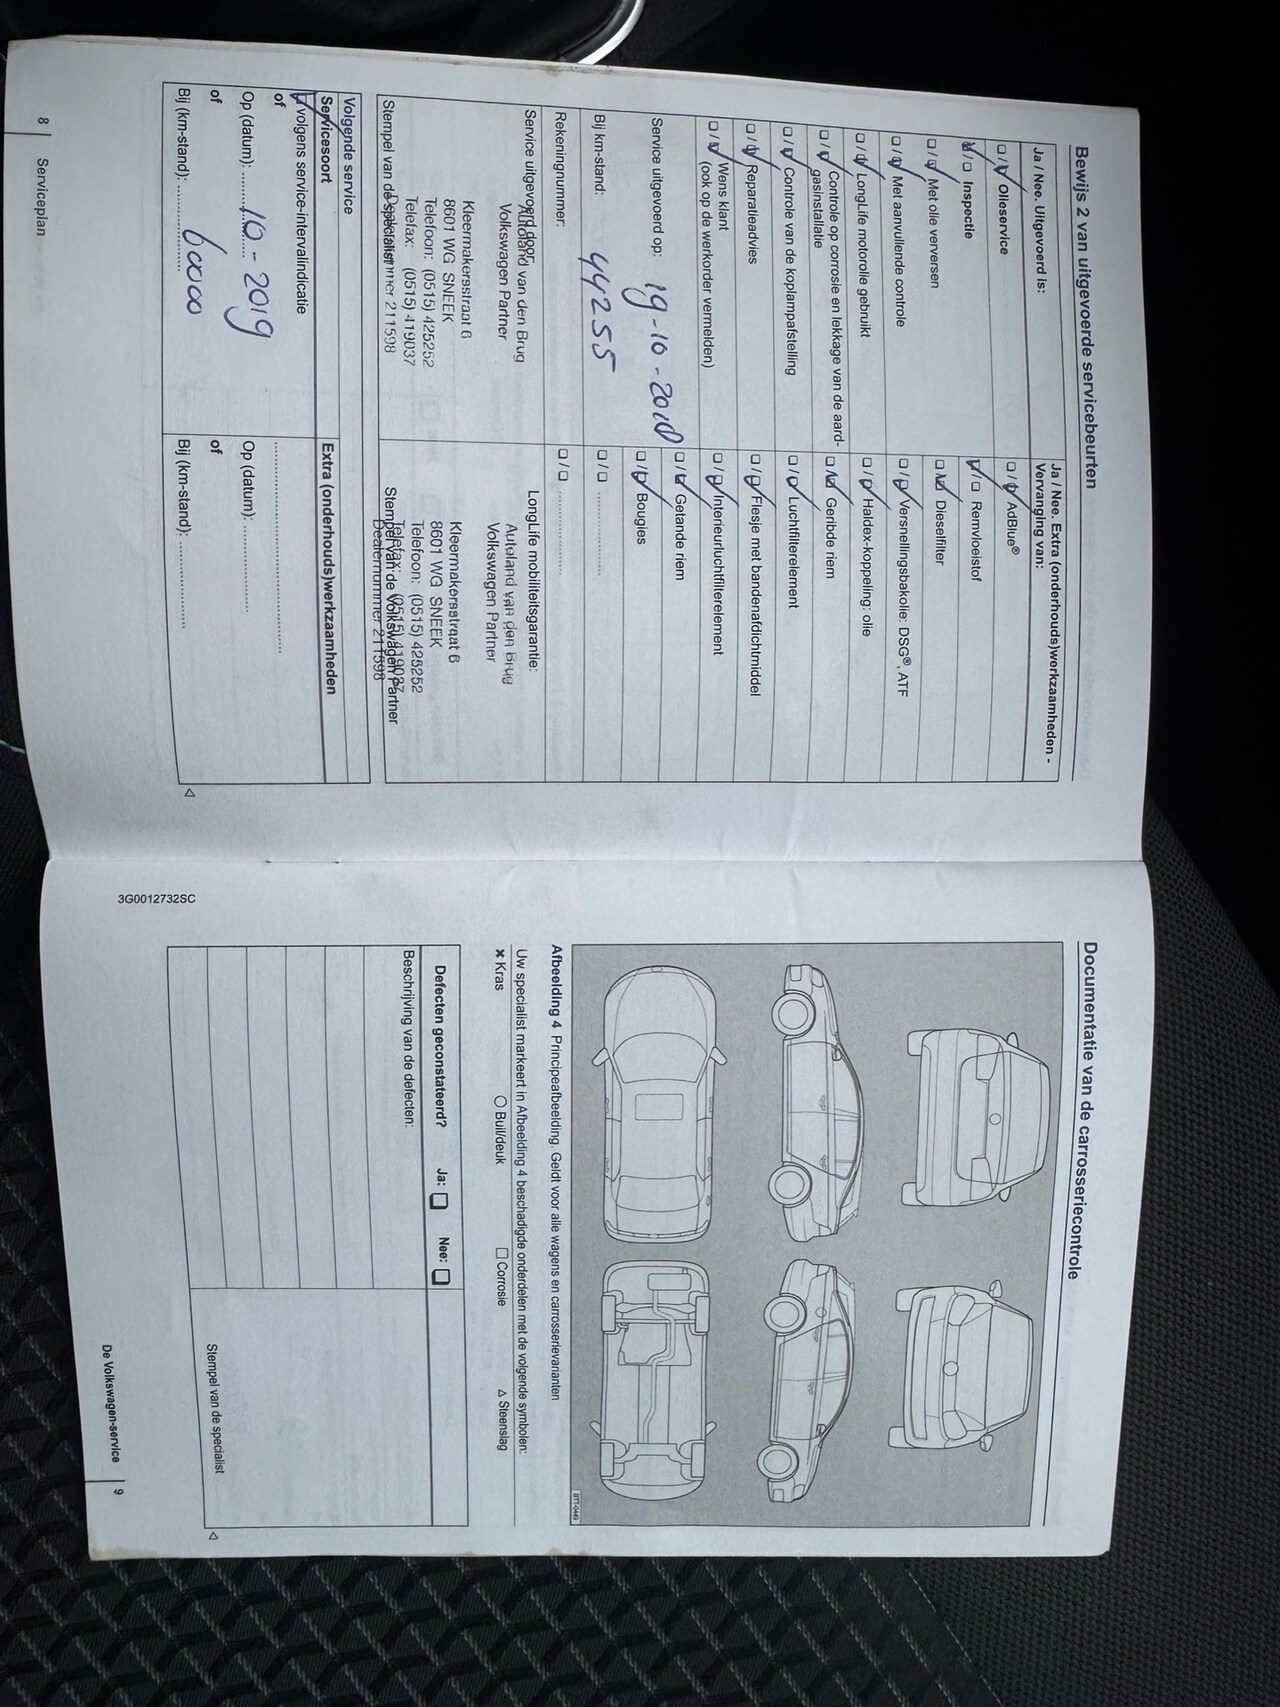 Bewijs 2 van uitgevoerde servicebeurten
Ja / Nee. Uitgevoerd is:
☐ / ☑ Olieservice
☑ / ☐ Inspectie
☐ / ☑ Met olie verversen
☐ / ☑ Met aanvullende controle
☐ / ☑ LongLife motorolie gebruikt
☐ / ☑ Controle op corrosie en lekkage van de aard-
gasinstallatie
☐ / ☑ Controle van de koplampafstelling
☐ / ☑ Reparatieadvies
☐ / ☑ Wens klant
(ook op de werkorder vermelden)
Service uitgevoerd op: 19-10-2018
Bij km-stand: 44255
Rekeningnummer:
Service uitgevoerd door:
Autoland van den Brug
Volkswagen Partner
Kleermakersstraat 6
8601 WG SNEEK
Telefoon: (0515) 425252
Telefax: (0515) 419037
Dealernummer 211598
Stempel van de specialist
Ja / Nee. Extra (onderhouds)werkzaamheden -
Vervanging van:
☐ / ☑ AdBlue®
☑ / ☐ Remvloeistof
☐ / ☑ Dieselfilter
☐ / ☑ Versnellingsbakolie: DSG®, ATF
☐ / ☑ Haldex-koppeling: olie
☐ / ☑ Geribde riem
☐ / ☑ Luchtfilterelement
☐ / ☑ Flesje met bandenafdichtmiddel
☐ / ☑ Interieurluchtfilterelement
☐ / ☑ Getande riem
☐ / ☑ Bougies
☐ / ☐ ....................
☐ / ☐ ....................
LongLife mobiliteitsgarantie:
Autoland van den Brug
Volkswagen Partner
Kleermakersstraat 6
8601 WG SNEEK
Telefoon: (0515) 425252
Telefax: (0515) 419037
Dealernummer 211598
Stempel van de Volkswagen Partner
Volgende service
Servicesoort
☑ volgens service-intervalindicatie
of
Op (datum): 10-2019
of
Bij (km-stand): 60000
Extra (onderhouds)werkzaamheden
....................
Op (datum): ....................
of
Bij (km-stand): ....................
◁
8 | Serviceplan
Documentatie van de carrosseriecontrole
BTT-0449
Afbeelding 4 Principeafbeelding. Geldt voor alle wagens en carrosserievarianten
Uw specialist markeert in Afbeelding 4 beschadigde onderdelen met de volgende symbolen:
✖ Kras ○ Buil/deuk □ Corrosie △ Steenslag
Defecten geconstateerd? Ja: ☐ Nee: ☐
Beschrijving van de defecten:
Stempel van de specialist
◁
3G0012732SC
De Volkswagen-service | 9